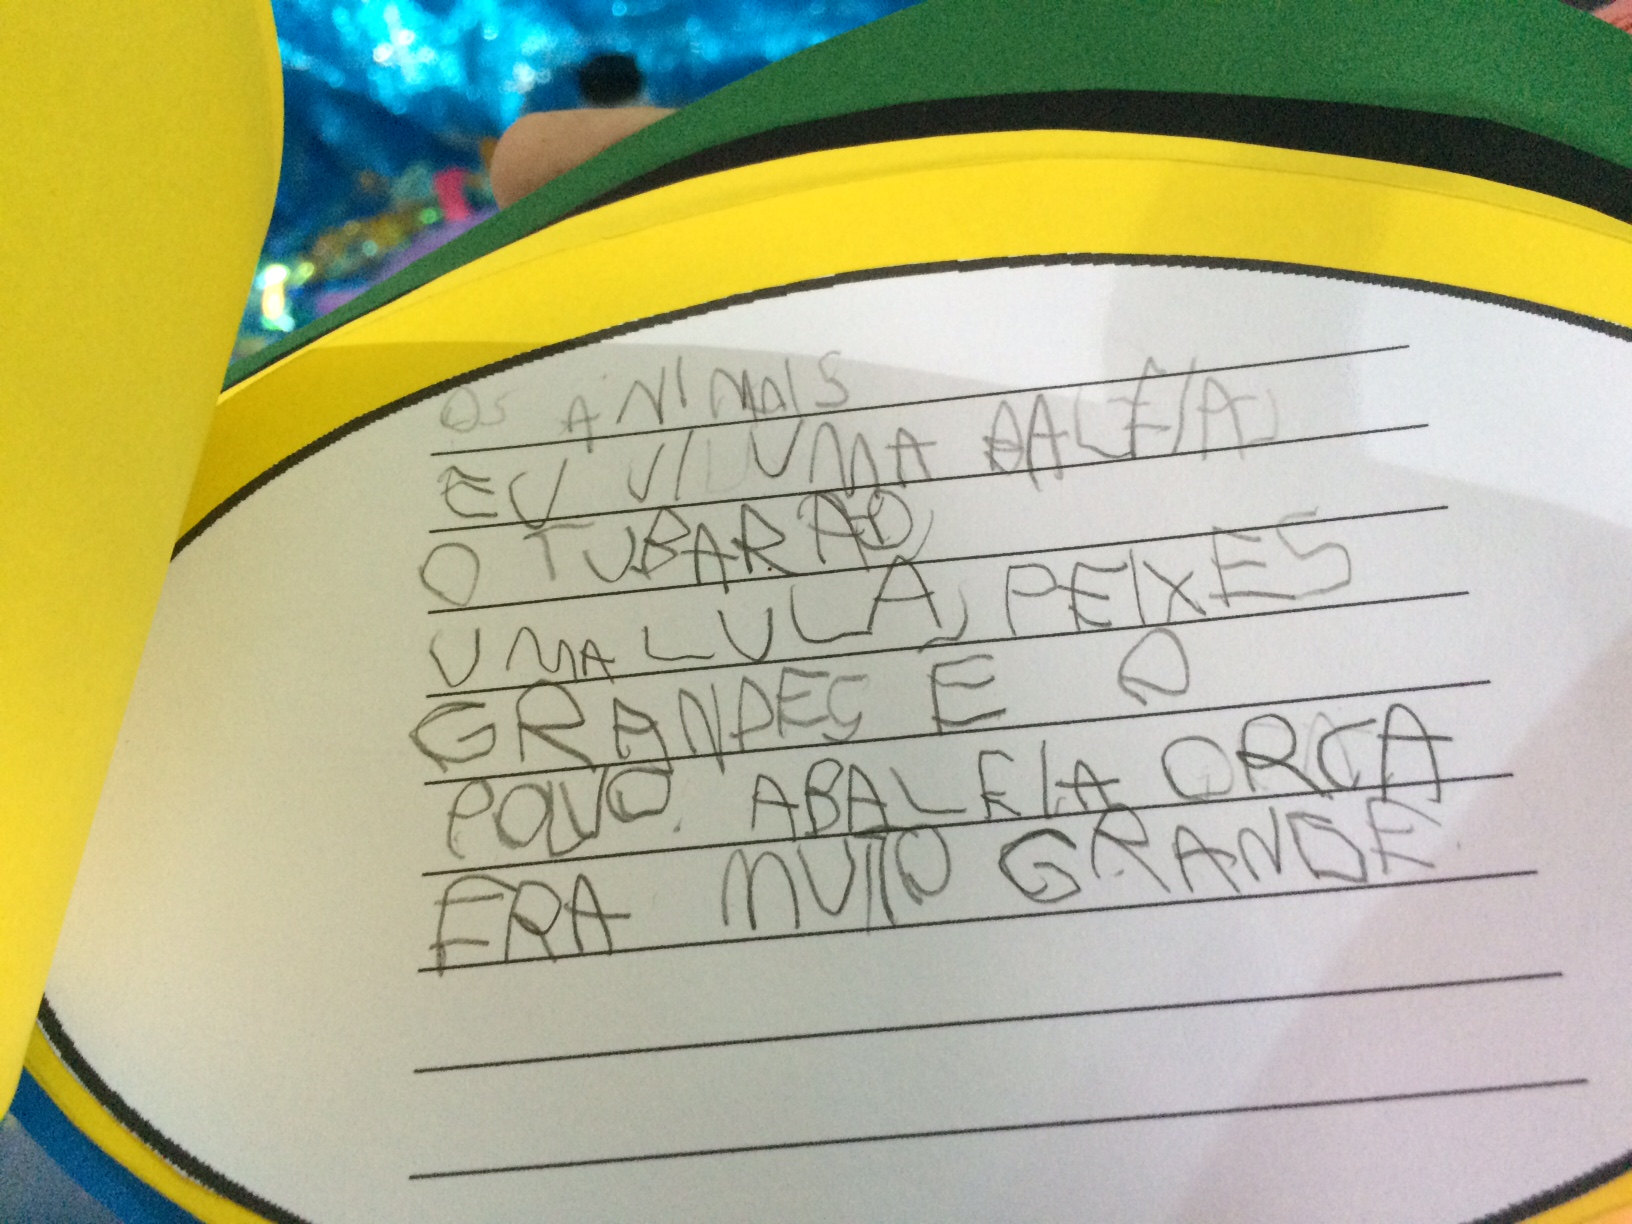 Os ANIMaIS
EU VI UMA BALEIA,
O TUBARAO,
UMA LULA, PEIXES
GRANDES E O
POLVO. ABALEIA ORCA
ERA MUITO GRANDE.